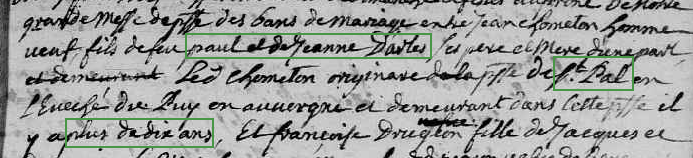 grande messe de psse des bans de mariage entre Jean chometon homme
veuf fils de feu paul et de Jeanne Darles ses pere et mere dune part
et demeurant Led chometon originaire de la psse de st. Pal en
l'Eveché du Puy en auvergne et demeurant dans cette psse il
y a plus de dix ans, Et françoise Drugton fille de Jacques et